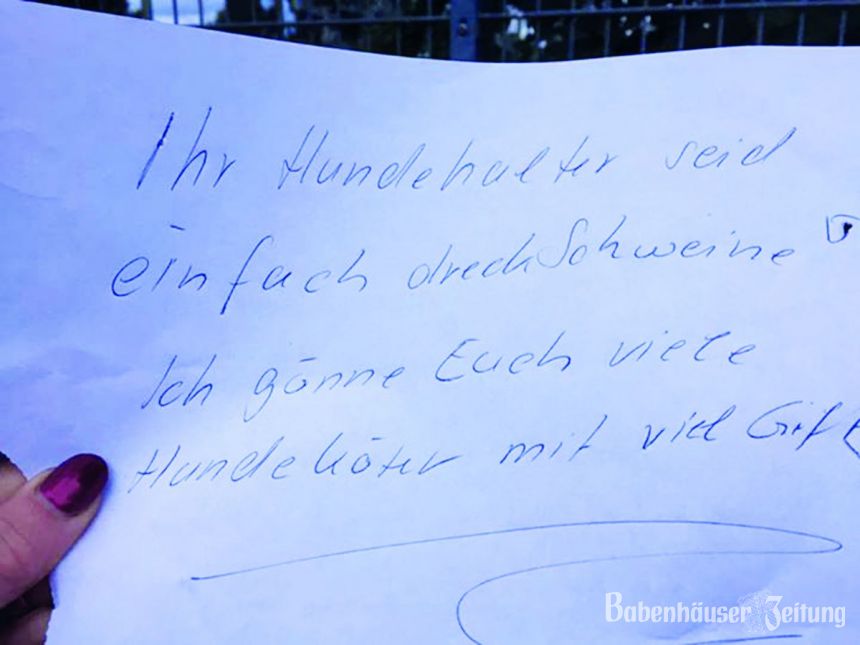 Ihr Hundehalter seid
einfach dreckSchweine
Ich gönne Euch viele
Hundeköter mit viel Gift
Babenhäuser Zeitung